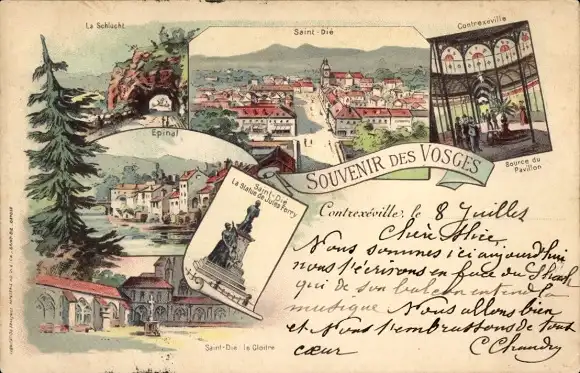 La Schlucht
Saint-Dié
Contrexéville
Epinal
Source du Pavillon
SOUVENIR DES VOSGES
Saint-Dié
La Statue de Jules Ferry
Saint-Dié le Cloître
Contrexéville, le 8 Juillet
Chère
Nous sommes ici aujourd'hui
nous t'écrivons en face du
qui de son balcon entend la
musique Nous allons bien
et Nous t'embrassons de tout
cœur
C Chaudry